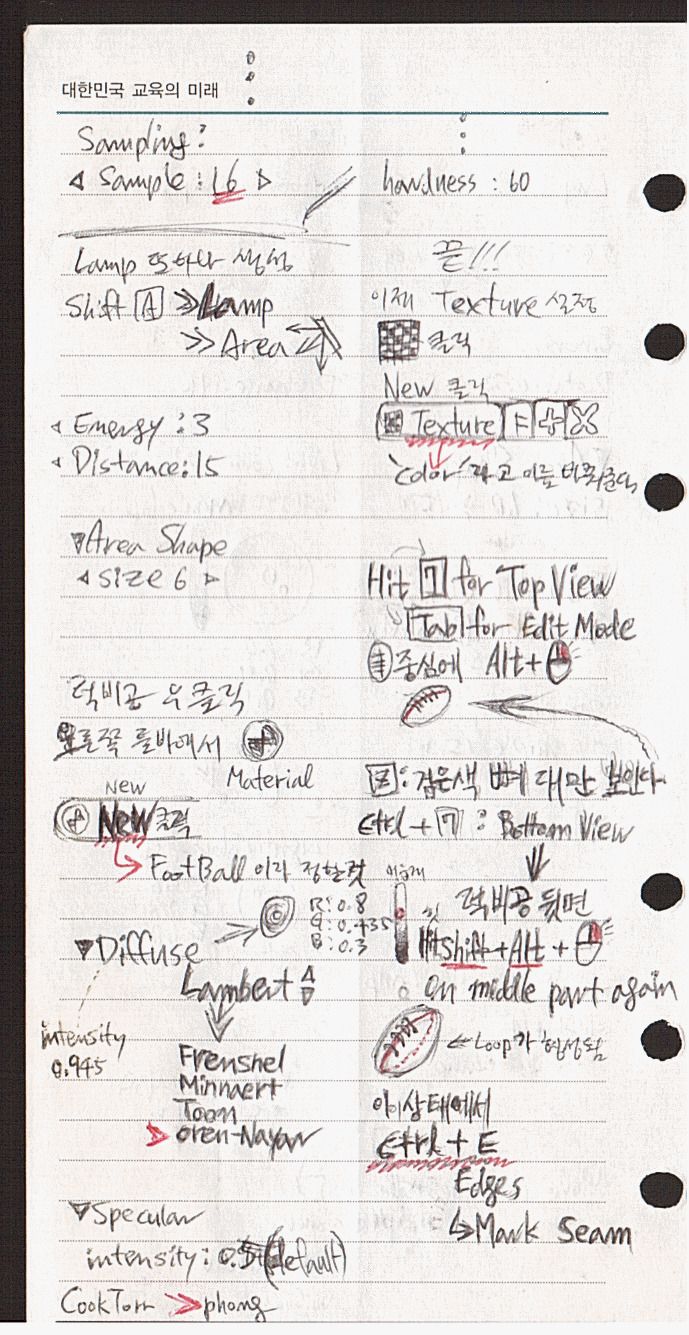 대한민국 교육의 미래
Sampling:
◁ Sample : 16 ▷
Lamp 또하나 생성
Shift A >> Lamp
>> Area
◁ Energy : 3
◁ Distance: 15
▼Area Shape
◁ size 6 ▷
럭비공 우클릭
오른쪽 툴바에서
Material
New
New 클릭
FootBall 이라 정할것
R: 0.8
G: 0.435
B: 0.3
▼Diffuse
Lambert
intensity
0.945
Frenshel
Minnaert
Toon
Oren-Nayar
▼Specular
intensity: 0.5 (default)
CookTorr > phong
hardness : 60
끝!!!
이제 Texture 설정
클릭
New 클릭
Texture F
'color' 라고 이름 바꿔준다
Hit 7 for Top View
Tab for Edit Mode
중심에 Alt+
Z: 검은색 뼈대만 보인다
Ctrl + 7 : Bottom View
럭비공 뒷면
Shift + Alt +
on middle part again
← Loop가 형성됨
이상태에서
Ctrl + E
Edges
↳ Mark Seam